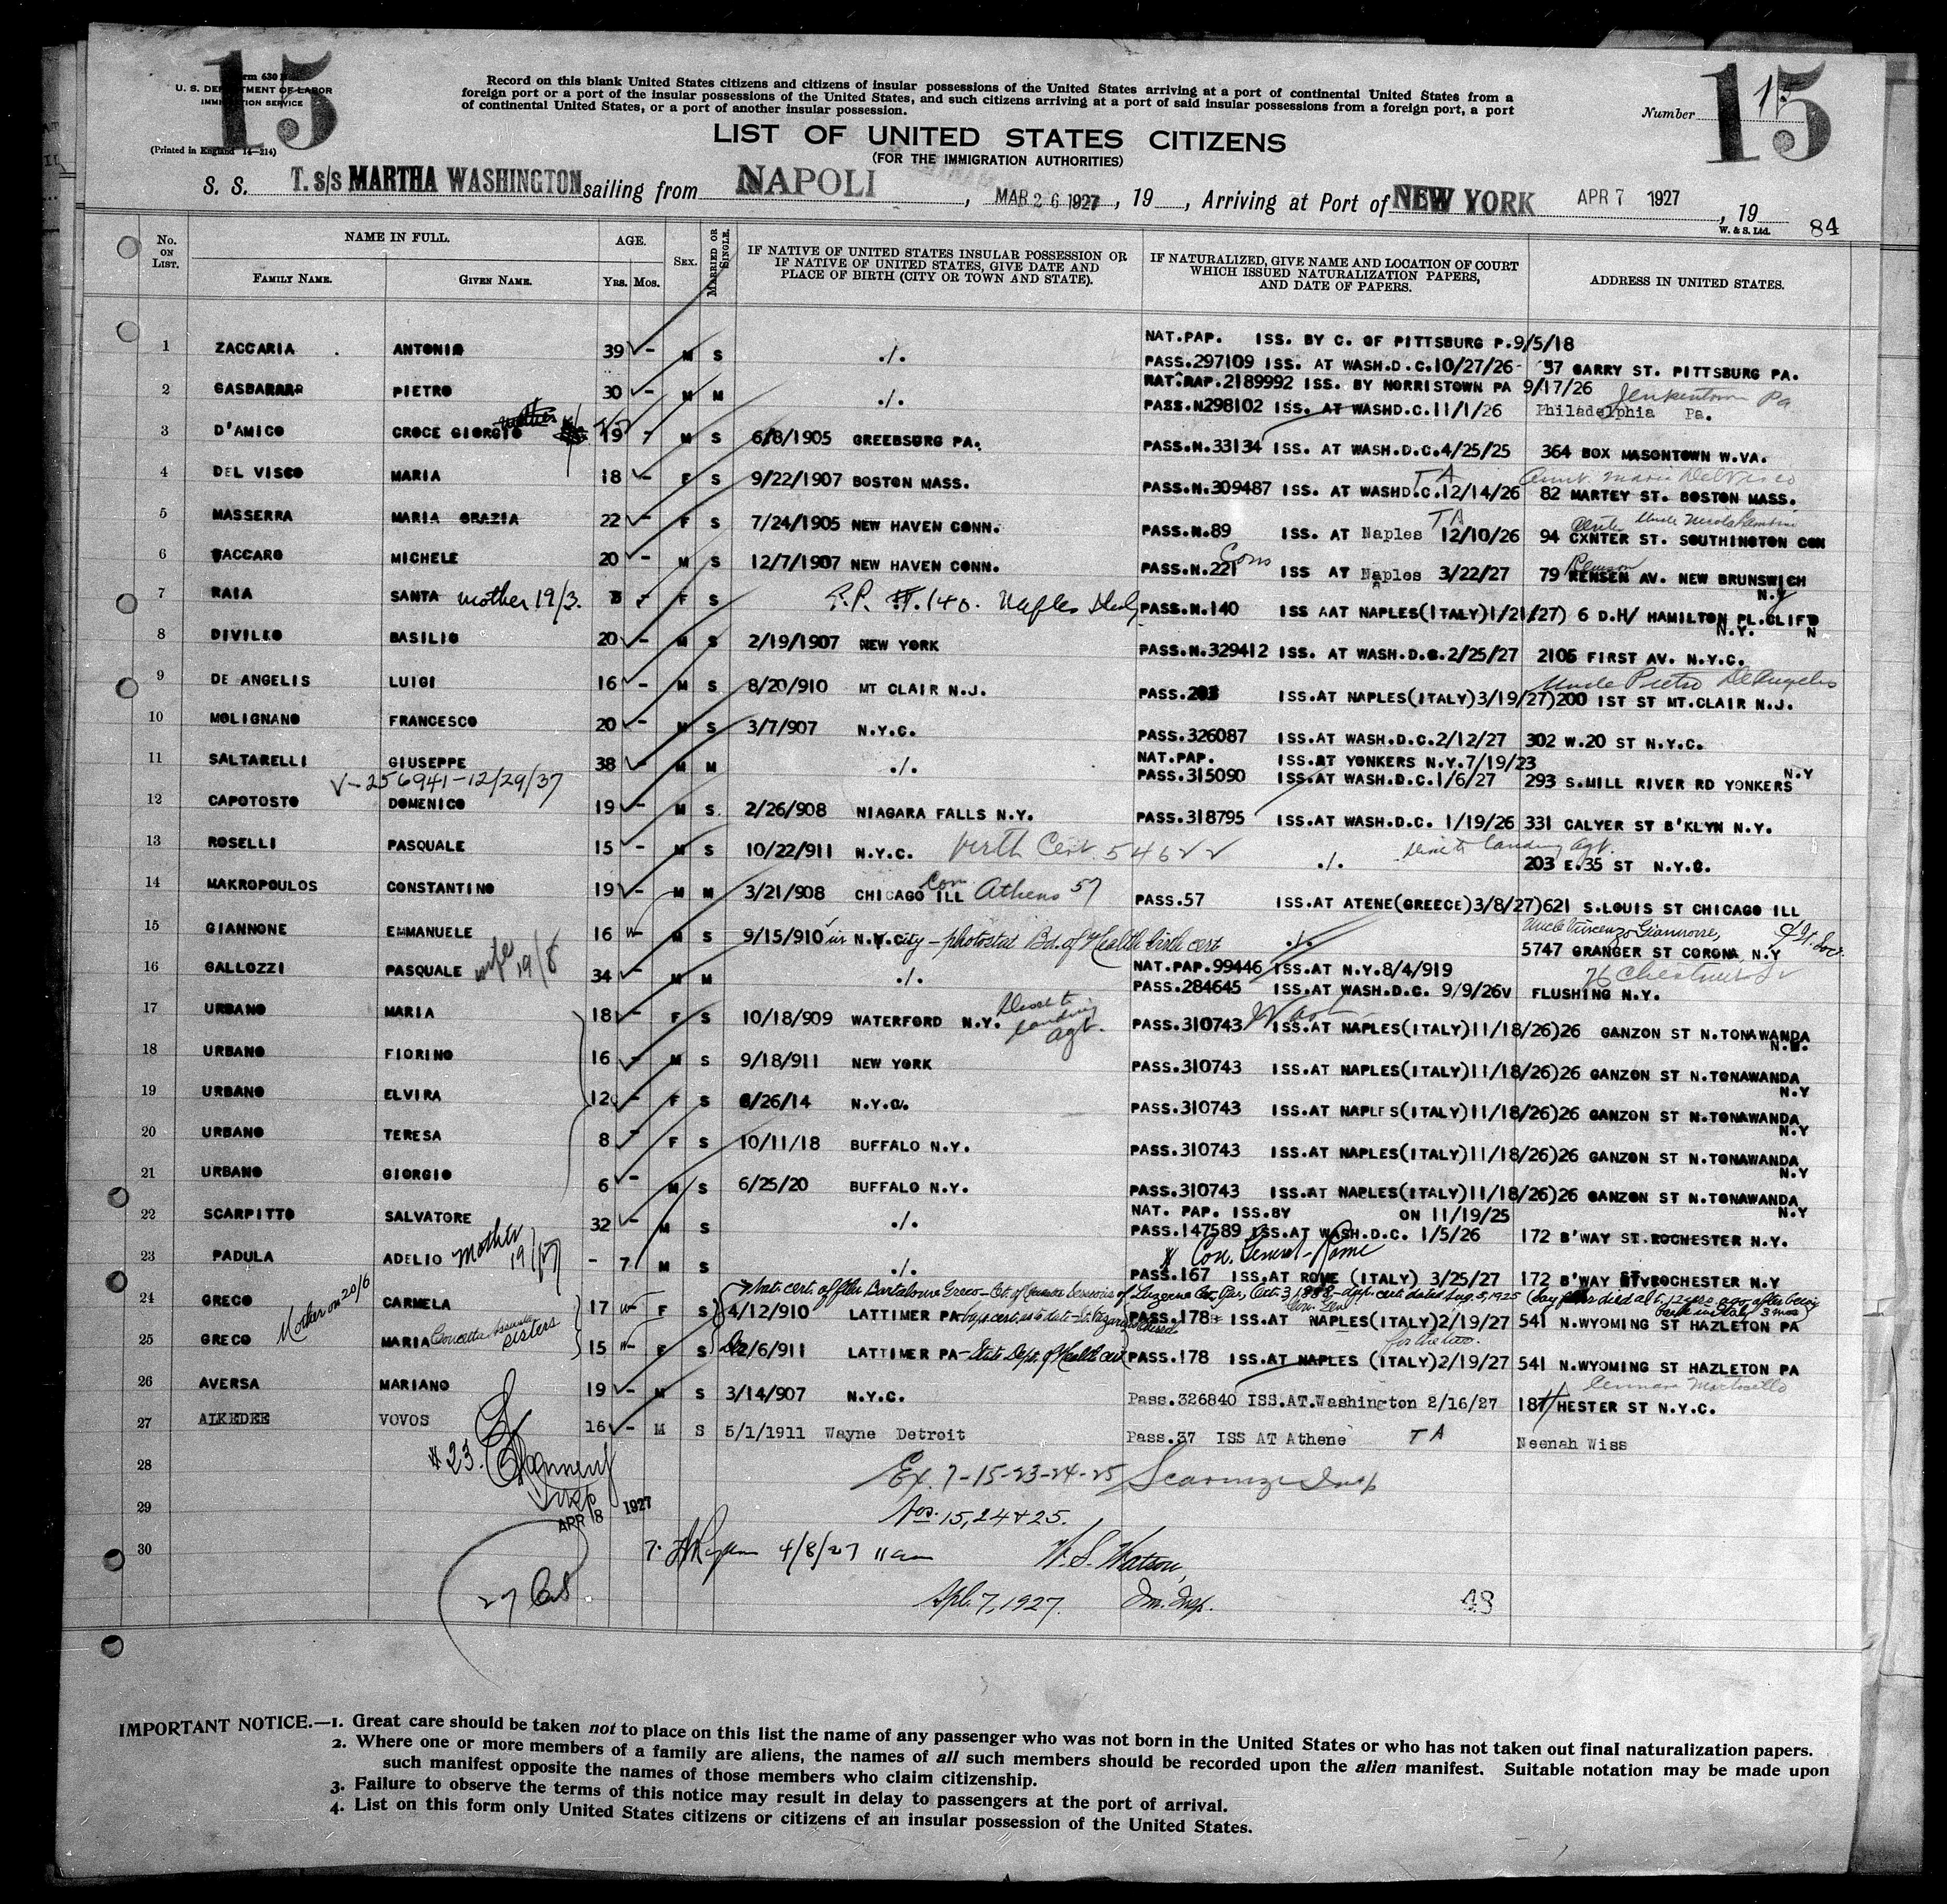 15
Form 630
U. S. DEPARTMENT OF LABOR
IMMIGRATION SERVICE
(Printed in England 14—214)
Record on this blank United States citizens and citizens of insular possessions of the United States arriving at a port of continental United States from a
foreign port or a port of the insular possessions of the United States, and such citizens arriving at a port of said insular possessions from a foreign port, a port
of continental United States, or a port of another insular possession.
Number 15
15
LIST OF UNITED STATES CITIZENS
(FOR THE IMMIGRATION AUTHORITIES)
S. S. T. s/s MARTHA WASHINGTON sailing from NAPOLI, MAR 26 1927, 19, Arriving at Port of NEW YORK APR 7 1927, 19
W. & S. Ltd. 84
No. ON LIST. NAME IN FULL. FAMILY NAME. GIVEN NAME. AGE. YRS. MOS. SEX. MARRIED OR SINGLE. IF NATIVE OF UNITED STATES INSULAR POSSESSION OR IF NATIVE OF UNITED STATES, GIVE DATE AND PLACE OF BIRTH (CITY OR TOWN AND STATE). IF NATURALIZED, GIVE NAME AND LOCATION OF COURT WHICH ISSUED NATURALIZATION PAPERS, AND DATE OF PAPERS. ADDRESS IN UNITED STATES.
NAT.PAP. ISS. BY C. OF PITTSBURG P.9/5/18
1 ZACCARIA ANTONIO 39 - M S ./. PASS.297109 ISS. AT WASH.D.C.10/27/26- 57 GARRY ST. PITTSBURG PA.
NAT.PAP.2189992 ISS. BY NORRISTOWN PA 9/17/26 Jenkentown Pa
2 GASBARRR PIETRO 30 - M M ./. PASS.N298102 ISS. AT WASHD.C.11/1/26 Philadelphia Pa.
3 D'AMICO CROCE GIORGIO 19 7 M S 6/8/1905 GREEBSBURG PA. PASS.N.33134 ISS. AT WASH.D.C.4/25/25 364 BOX MASONTOWN W.VA.
TA Aunt Maria DelVisco
4 DEL VISCO MARIA 18 - F S 9/22/1907 BOSTON MASS. PASS.N.309487 ISS. AT WASHD.C.12/14/26 82 MARTEY ST. BOSTON MASS.
TA Center Uncle Nicola
5 MASSERRA MARIA GRAZIA 22 - F S 7/24/1905 NEW HAVEN CONN. PASS.N.89 ISS. AT Naples 12/10/26 94 CXNTER ST. SOUTHINGTON CON
Cons Remson
6 SACCARO MICHELE 20 - M S 12/7/1907 NEW HAVEN CONN. PASS.N.221 ISS AT Naples 3/22/27 79 RENSEN AV. NEW BRUNSWICH N.Y
7 RAIA SANTA mother 19/3. F S P.P. #.140. Naples Italy PASS.N.140 ISS AAT NAPLES(ITALY)1/21/27) 6 D.H/ HAMILTON PL.CLIFD N.Y. N
8 DIVILIO BASILIO 20 - M S 2/19/1907 NEW YORK PASS.N.329412 ISS. AT WASH.D.C.2/25/27 2105 FIRST AV. N.Y.C.
Uncle Pietro DeAngelis
9 DE ANGELIS LUIGI 16 - M S 8/20/910 MT CLAIR N.J. PASS.203 ISS.AT NAPLES(ITALY)3/19/27)200 1ST ST MT.CLAIR N.J.
10 MOLIGNANO FRANCESCO 20 - M S 3/7/907 N.Y.C. PASS.326087 ISS.AT WASH.D.C.2/12/27 302 W.20 ST N.Y.C.
NAT.PAP. ISS.AT YONKERS N.Y.7/19/23
11 SALTARELLI GIUSEPPE 38 - M M ./. PASS.315090 ISS.AT WASH.D.C.1/6/27 293 S.MILL RIVER RD YONKERS N.Y
V-256941-12/29/37
12 CAPOTOSTO DOMENICO 19 - M S. 2/26/908 NIAGARA FALLS N.Y. PASS.318795 ISS.AT WASH.D.C. 1/19/26 331 CALYER ST B'KLYN N.Y.
13 ROSELLI PASQUALE 15 - M S 10/22/911 N.Y.C. birth Cert. 54622 ./. Disc to landing agt. 203 E.35 ST N.Y.C.
14 MAKROPOULOS CONSTANTINO 19 - M M 3/21/908 CHICAGO ILL Con Athens 57 PASS.57 ISS.AT ATENE(GREECE)3/8/27)621 S.LOUIS ST CHICAGO ILL
Uncle Vincenzo Giannone,
15 GIANNONE EMMANUELE 16 M S 9/15/910 in N.Y.City - photostat Bd. of Health birth cert ./. 5747 GRANGER ST CORONA, N.Y
NAT.PAP.99446 ISS.AT N.Y.8/4/919 76 Chestnut St
16 GALLOZZI PASQUALE wife 19/8 34 M M ./. PASS.284645 ISS.AT WASH.D.C. 9/9/26v FLUSHING N.Y.
17 URBANO MARIA 18 - F S 10/18/909 WATERFORD N.Y. Disc to landing agt. PASS.310743 Wash ISS.AT NAPLES(ITALY)11/18/26)26 GANZON ST N.TONAWANDA N.Y.
18 URBANO FIORINO 16 - M S 9/18/911 NEW YORK PASS.310743 ISS.AT NAPLES(ITALY)11/18/26)26 GANZON ST N.TONAWANDA N.Y
19 URBANO ELVIRA 12 - F S 6/26/14 N.Y.C. PASS.310743 ISS.AT NAPLES(ITALY)11/18/26)26 GANZON ST N.TONAWANDA N.Y
20 URBANO TERESA 8 - F S 10/11/18 BUFFALO N.Y. PASS.310743 ISS.AT NAPLES(ITALY)11/18/26)26 GANZON ST N.TONAWANDA N.Y
21 URBANO GIORGIO 6 - M S 6/25/20 BUFFALO N.Y. PASS.310743 ISS.AT NAPLES(ITALY)11/18/26)26 GANZON ST N.TONAWANDA N.Y
NAT. PAP. ISS.BY ON 11/19/25
22 SCARPITTO SALVATORE 32 - M S ./. PASS.147589 ISS.AT WASH.D.C. 1/5/26 172 B'WAY ST.ROCHESTER N.Y.
Con. General - Rome
23 PADULA ADELIO Mother 19/27 - 7 M S ./. PASS.167 ISS.AT ROME (ITALY) 3/25/27 172 B'WAY ST ROCHESTER N.Y
Nat. cert. of fther Bartolome Greco - Ct. of Quarter Sessions of Luzerne Co., Pa., Oct. 3, 1898 - dupl. cert. dated Aug. 5, 1925 (say father died abt. 12 yrs. ago after being back in Italy 3 mos
Con. Gen
24 GRECO CARMELA 17 F S 4/12/910 LATTIMER PA PASS.178 ISS.AT NAPLES(ITALY)2/19/27 541 N.WYOMING ST HAZLETON PA
Mother on 20/6 for the two.
25 GRECO MARIA Concetta Assunta sisters 15 F S 12/6/911 LATTIMER PA - State Dept. of Health cert PASS.178 ISS.AT NAPLES (ITALY)2/19/27 541 N.WYOMING ST HAZLETON PA
26 AVERSA MARIANO 19 - M S 3/14/907 N.Y.C. Pass.326840 ISS.AT.Washington 2/16/27 187 HESTER ST N.Y.C.
27 ALKEDEE VOVOS 16 - M S 5/1/1911 Wayne Detroit Pass.37 ISS AT Athene TA Neenah Wiss
28 #23. Insp Ex. 7-15-23-24-25 Insp
29 APR 8 1927 Nos. 15, 24 & 25.
30 4/8/27 11 am W. S. Watson,
27 Apl. 7, 1927. Im. Insp. 48
IMPORTANT NOTICE.—1. Great care should be taken not to place on this list the name of any passenger who was not born in the United States or who has not taken out final naturalization papers.
2. Where one or more members of a family are aliens, the names of all such members should be recorded upon the alien manifest. Suitable notation may be made upon
such manifest opposite the names of those members who claim citizenship.
3. Failure to observe the terms of this notice may result in delay to passengers at the port of arrival.
4. List on this form only United States citizens or citizens of an insular possession of the United States.